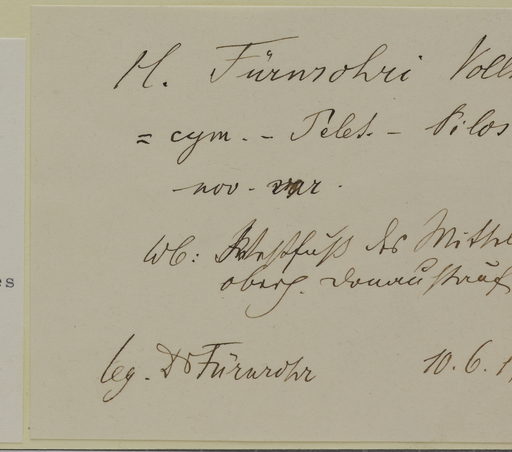 H. Fürnrohri Voll
= cym. - Pelet. - Pilos
nov. var.
Wb: Westfuß des Mittel
oberh. Donaustauf
leg. Dr Fürnrohr 10.6.1
es